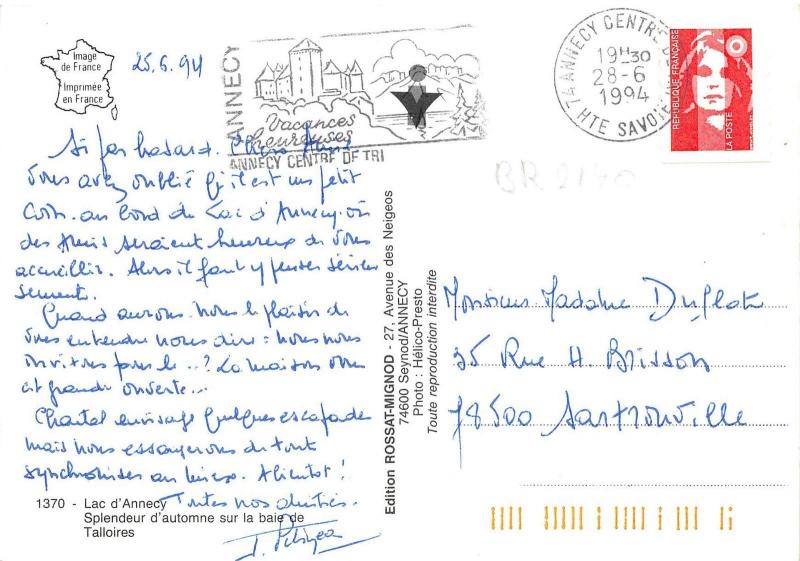 Image
de France
Imprimée
en France
25.6.94
ANNECY
Vacances
heureuses
ANNECY CENTRE DE TRI
74 ANNECY CENTRE DE
19H30
28-6
1994
HTE SAVOIE
REPUBLIQUE FRANÇAISE
LA POSTE
BR 2140
Si par hasard. Chers Amis
vous avez oublié qu'il est un petit
coin. au bord du Lac d'Annecy. où
des Amis seraient heureux de vous
accueillir. Alors il faut y penser sérieu
sement.
Quand aurons. nous le plaisir de
vous entendre nous dire : nous nous
invitons pour le ..? La maison vous
est grande ouverte...
Chantal envisage quelques escapades
mais nous essayerons de tout
synchroniser au mieux. A bientôt !
Toutes nos amitiés.
1370 - Lac d'Annecy
Splendeur d'automne sur la baie de
Talloires
Edition ROSSAT-MIGNOD - 27, Avenue des Neigeos
74600 Seynod/ANNECY
Photo : Hélico-Presto
Toute reproduction interdite
Monsieur Madame Duflot
35 Rue H. Brisson
78500 Sartrouville